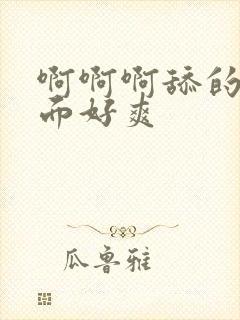 啊啊啊舔的
而好爽
瓜鲁雅